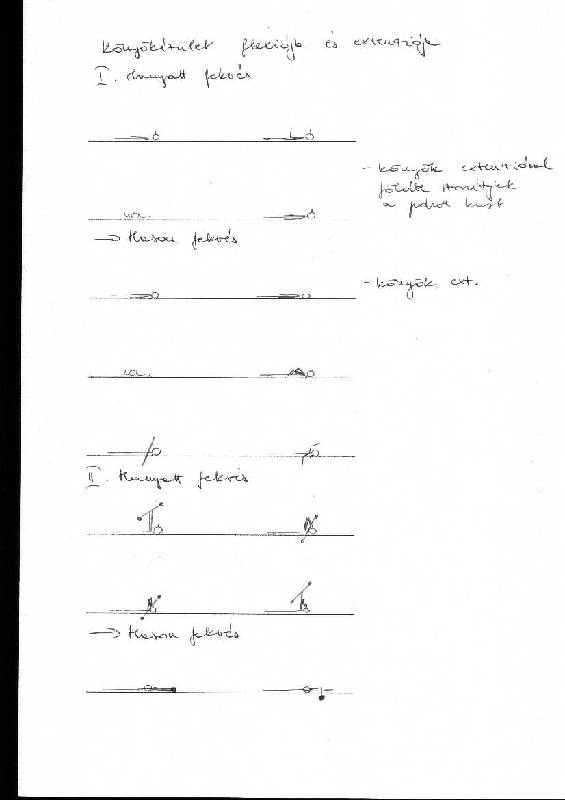 Könyökízület flexiója és extenziója
I. Hanyatt fekvés
- könyök extenzióval
földre szorítjuk
a
ua.
→ Hason fekvés
- könyök ext.
ua.
II. Hanyatt fekvés
→ Hason fekvés